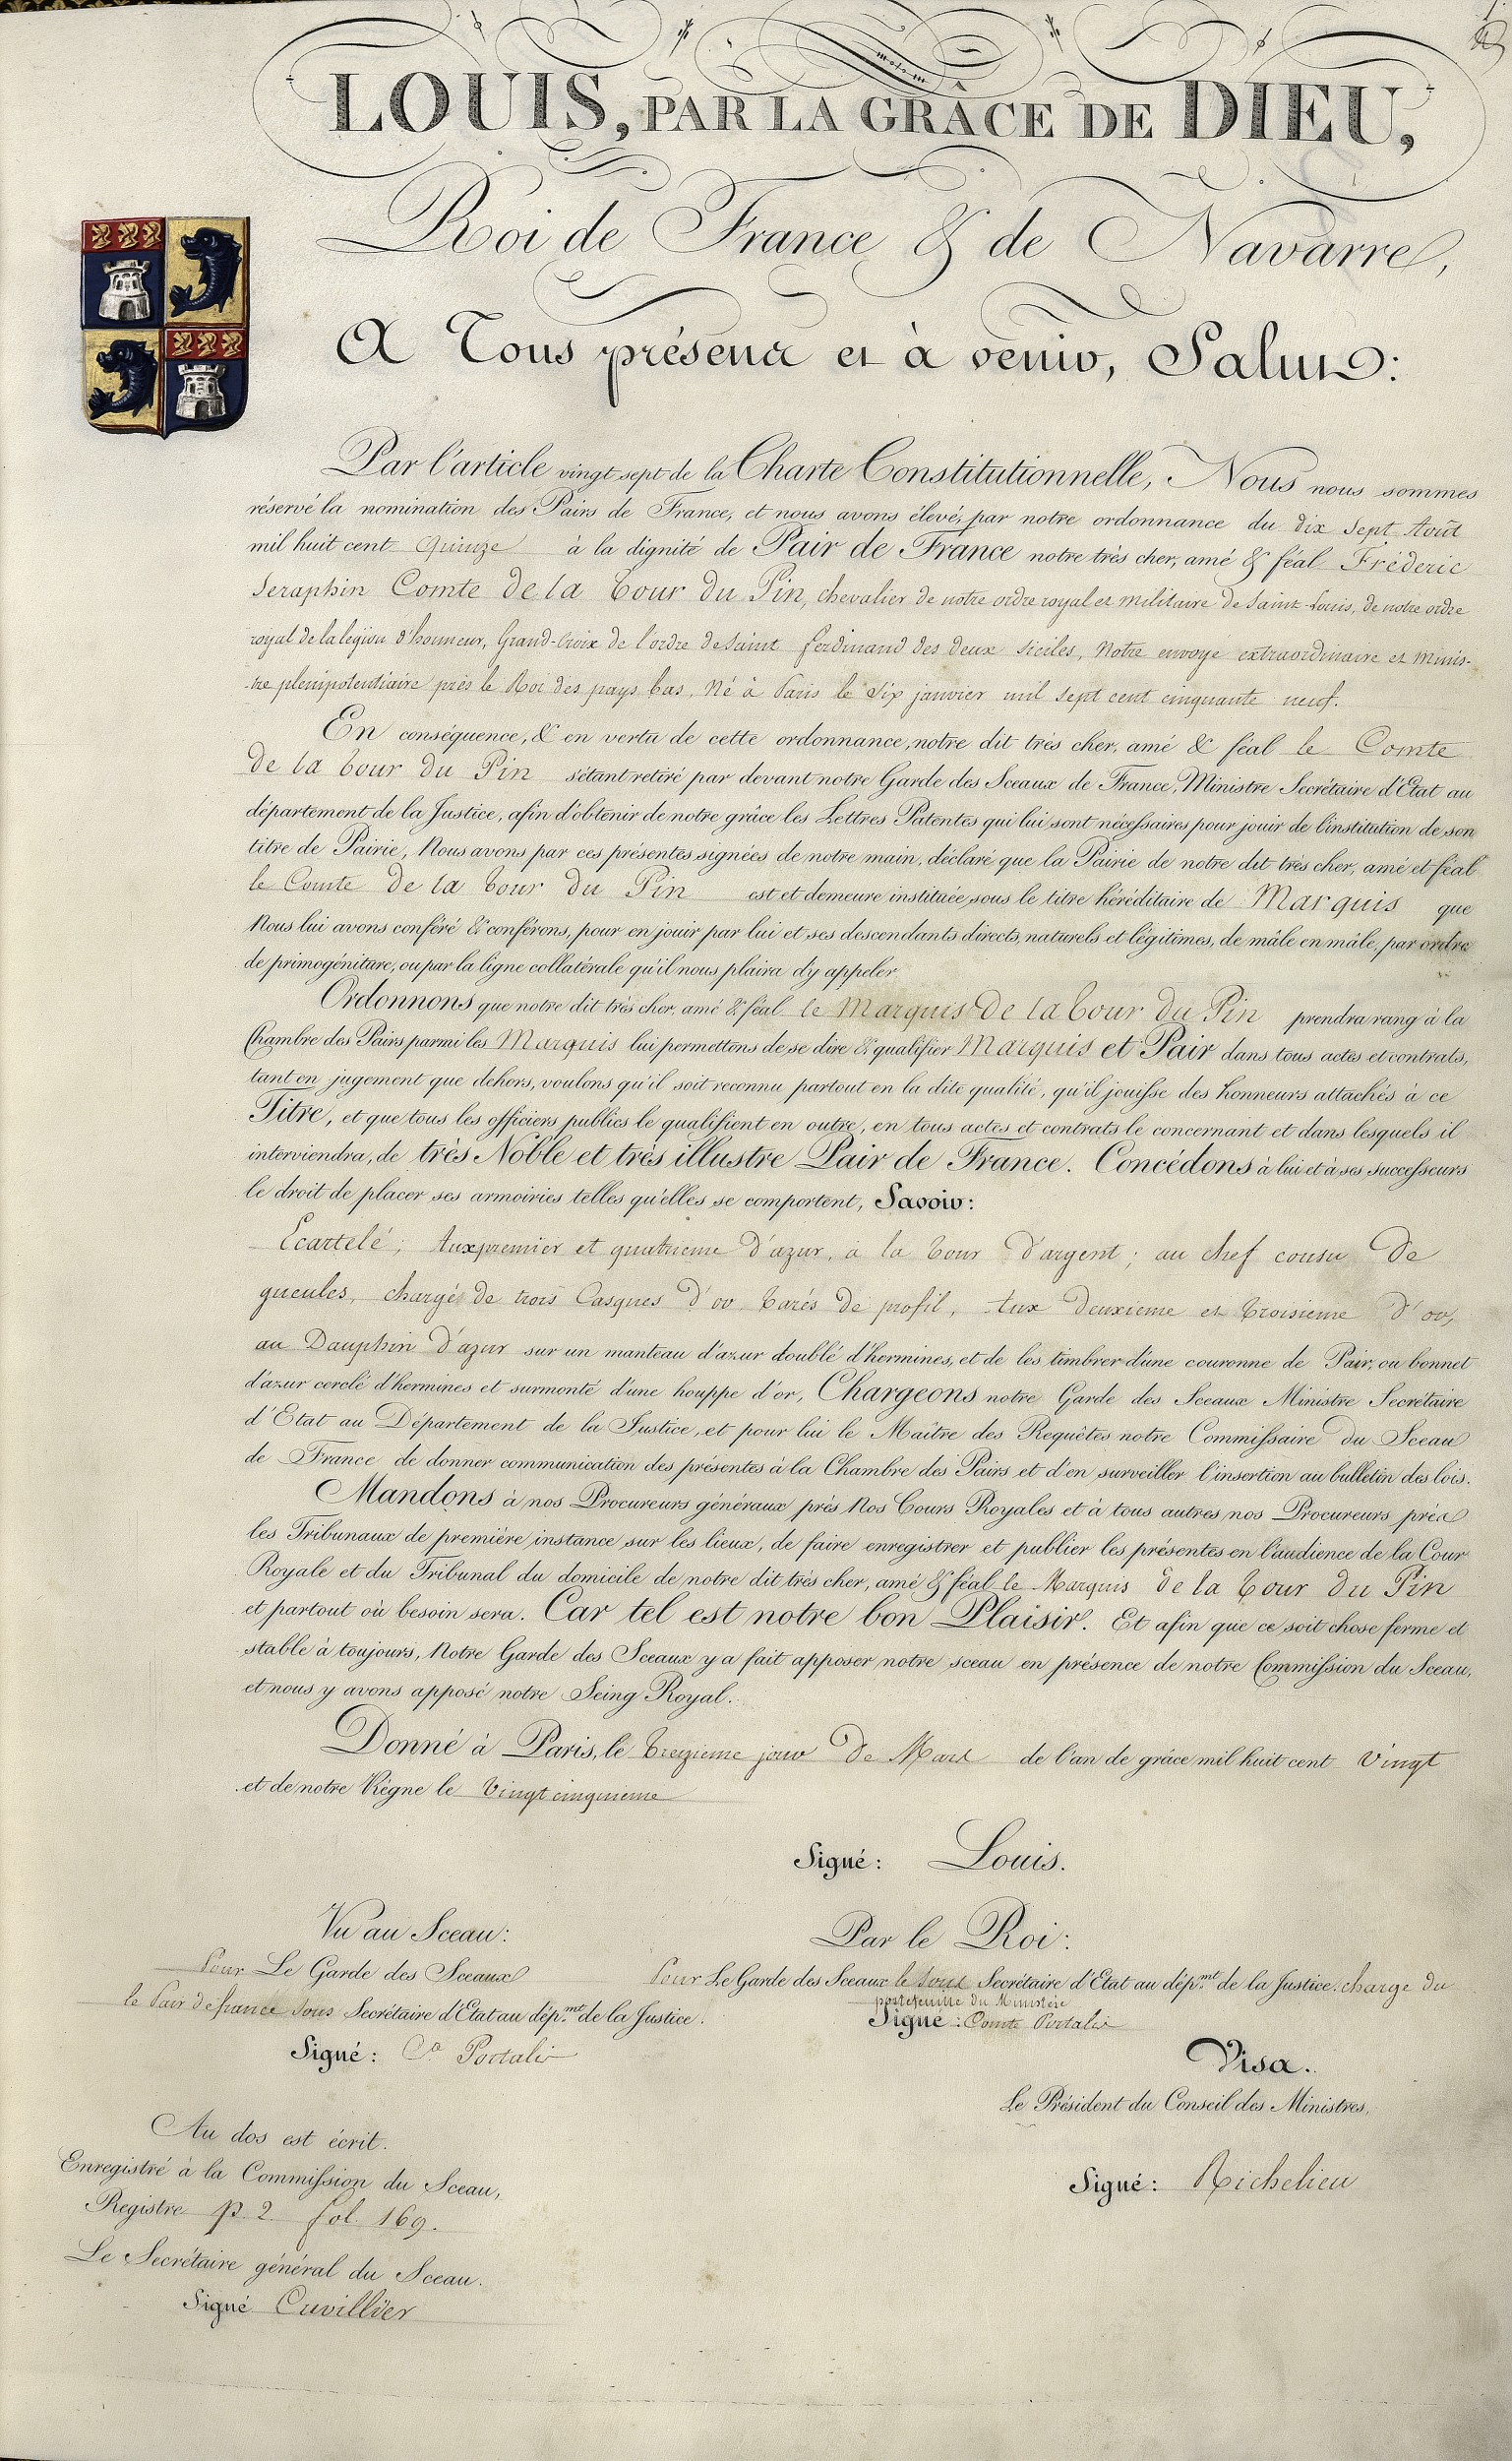 LOUIS, PAR LA GRÂCE DE DIEU,
Roi de France & de Navarre,
A Tous présens et à venir, Salut:
Par l'article vingt sept de la Charte Constitutionnelle, Nous nous sommes
réservé la nomination des Pairs de France, et nous avons élevé, par notre ordonnance du dix Sept Août
mil huit cent Quinze à la dignité de Pair de France notre très cher, amé & féal Fréderic
Seraphin Comte de la Tour du Pin, chevalier de notre ordre royal et militaire de Saint-Louis, de notre ordre
royal de la légion d'honneur, Grand-Croix de l'ordre de Saint ferdinand des deux Siciles, Notre envoyé extraordinaire et minis-
-tre plenipotentiaire près le Roi des pays bas, Né à Paris le Six janvier mil Sept cent cinquante neuf.
En conséquence, & en vertu de cette ordonnance, notre dit très cher, amé & féal le Comte
de la Tour du Pin s'étant retiré par devant notre Garde des Sceaux de France, Ministre Secrétaire d'Etat au
département de la Justice, afin d'obtenir de notre grâce les Lettres Patentes qui lui sont nécessaires pour jouir de l'institution de son
titre de Pairie, Nous avons par ces présentes signées de notre main, déclaré que la Pairie de notre dit très cher, amé et féal
le Comte de la Tour du Pin est et demeure instituée sous le titre héréditaire de Marquis que
Nous lui avons conféré & conférons, pour en jouir par lui et ses descendants directs, naturels et légitimes, de mâle en mâle, par ordre
de primogéniture, ou par la ligne collatérale qu'il nous plaira d'y appeler.
Ordonnons que notre dit très cher, amé & féal le Marquis de la Tour du Pin prendra rang à la
Chambre des Pairs parmi les Marquis lui permettons de se dire & qualifier Marquis et Pair dans tous actes et contrats,
tant en jugement que dehors, voulons qu'il soit reconnu partout en la dite qualité, qu'il jouisse des honneurs attachés à ce
Titre, et que tous les officiers publics le qualifient en outre, en tous actes et contrats le concernant et dans lesquels il
interviendra, de très Noble et très illustre Pair de France. Concédons à lui et à ses successeurs
le droit de placer ses armoiries telles qu'elles se comportent, Savoir:
Ecartelé; Aux premier et quatrieme d'azur, à la Tour d'argent; au chef cousu de
gueules, chargé de trois Casques d'or Tarés de profil, Aux deuxieme et Troisieme d'or,
au Dauphin d'azur sur un manteau d'azur doublé d'hermines, et de les timbrer d'une couronne de Pair, ou bonnet
d'azur cerclé d'hermines et surmonté d'une houppe d'or, Chargeons notre Garde des Sceaux Ministre Secrétaire
d'Etat au Département de la Justice, et pour lui le Maître des Requêtes notre Commissaire du Sceau
de France de donner communication des présentes à la Chambre des Pairs et d'en surveiller l'insertion au bulletin des lois.
Mandons à nos Procureurs généraux près Nos Cours Royales et à tous autres nos Procureurs près
les Tribunaux de première instance sur les lieux, de faire enregistrer et publier les présentes en l'audience de la Cour
Royale et du Tribunal du domicile de notre dit très cher, amé & féal le Marquis de la Tour du Pin
et partout où besoin sera. Car tel est notre bon Plaisir. Et afin que ce soit chose ferme et
stable à toujours, Notre Garde des Sceaux y a fait apposer notre sceau en présence de notre Commission du Sceau,
et nous y avons apposé notre Seing Royal.
Donné à Paris, le Treizieme jour de Mars de l'an de grâce mil huit cent Vingt
et de notre Règne le Vingt cinquieme
Signé: Louis.
Vu au Sceau:
Pour Le Garde des Sceaux
le Pair de france Sous Secrétaire d'Etat au dép.mt de la Justice.
Signé: Cte Portalis
Par le Roi:
Pour Le Garde des Sceaux le Sous Secrétaire d'Etat au dép.mt de la Justice. charge du
portefeuille du Ministère
Signé: Comte Portalis
Visa.
Le Président du Conseil des Ministres,
Signé: Richelieu
Au dos est écrit.
Enregistré à la Commission du Sceau,
Registre p. 2 fol. 169.
Le Secrétaire général du Sceau.
Signé Cuvillier